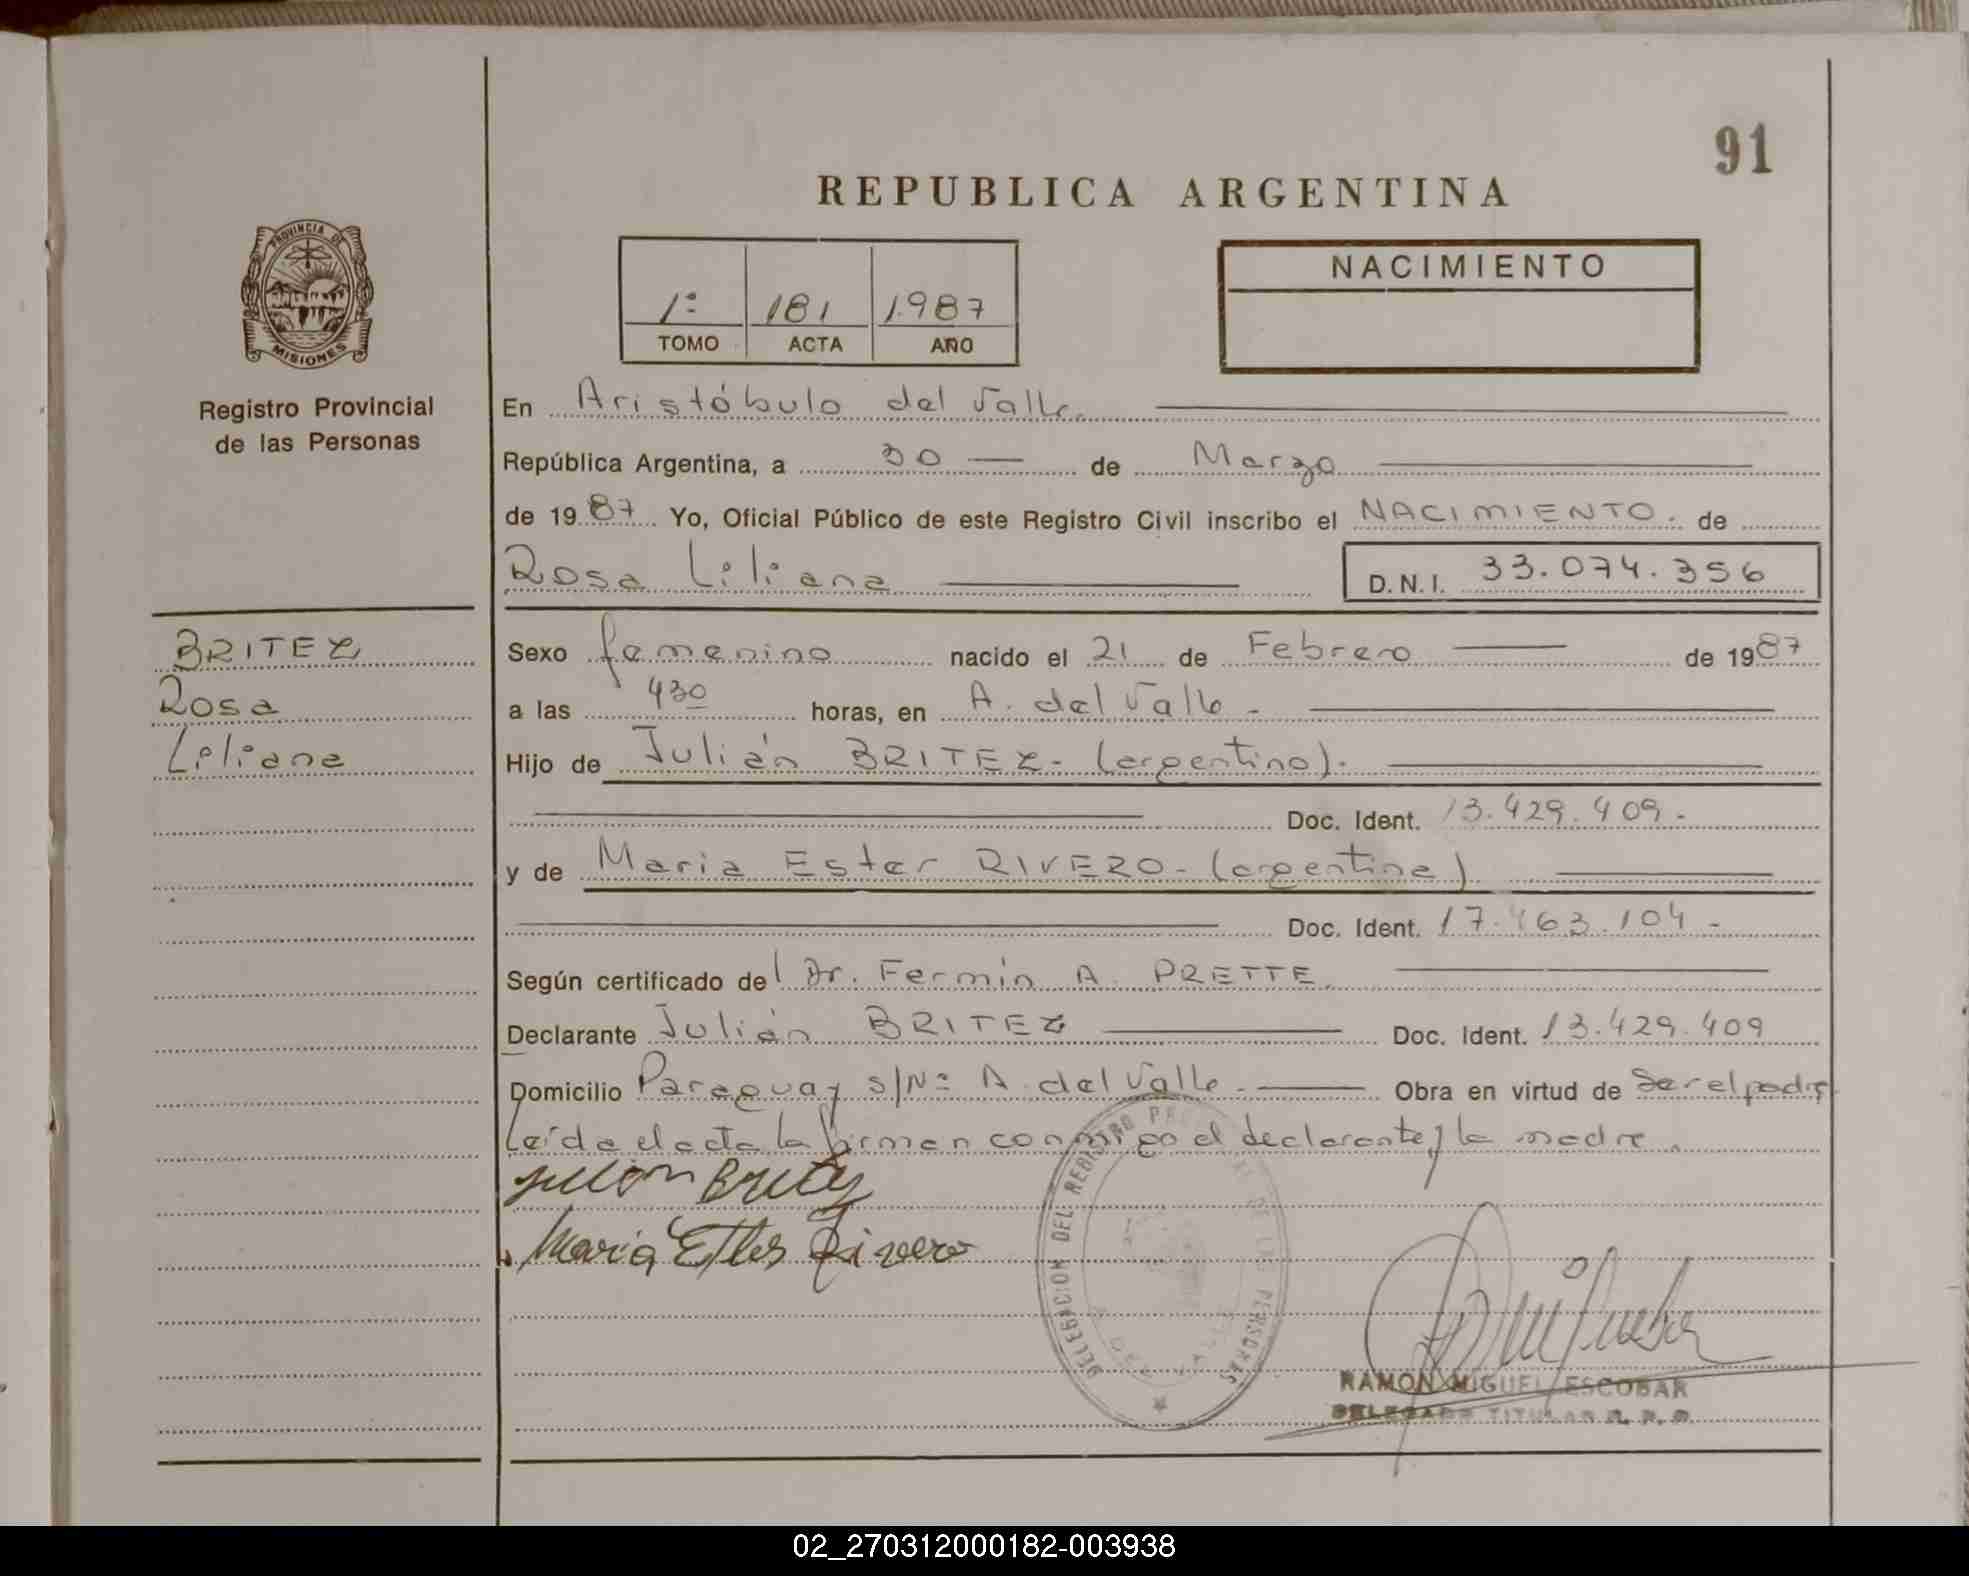 91
REPUBLICA ARGENTINA
PROVINCIA DE
MISIONES
Registro Provincial
de las Personas
1º 181 1987
TOMO ACTA AÑO
NACIMIENTO
En Aristóbulo del Valle.
República Argentina, a 30 de Marzo
de 1987 Yo, Oficial Público de este Registro Civil inscribo el NACIMIENTO. de
Rosa Liliana D.N.I. 33.074.356
BRITEZ
Rosa
Liliana
Sexo femenino nacido el 21 de Febrero de 1987
a las 430 horas, en A. del Valle -
Hijo de Julián BRITEZ - (argentino).
Doc. Ident. 13.429.409.-
y de Maria Ester RIVERO - (argentina)
Doc. Ident. 17.463.104 -
Según certificado del Dr. Fermín A. PRETTE.
Declarante Julián BRITEZ Doc. Ident. 13.429.409
Domicilio Paraguay s/Nº A. del Valle - Obra en virtud de Ser el padre
Leída el acta la firman conmigo el declarante y la madre.
Julian Britez
Maria Ester Rivero
DELEGACION DEL REGISTRO DE LAS PERSONAS
A. DEL VALLE
RAMON MIGUEL ESCOBAR
DELEGADO TITULAR R. P. P.
02_270312000182-003938